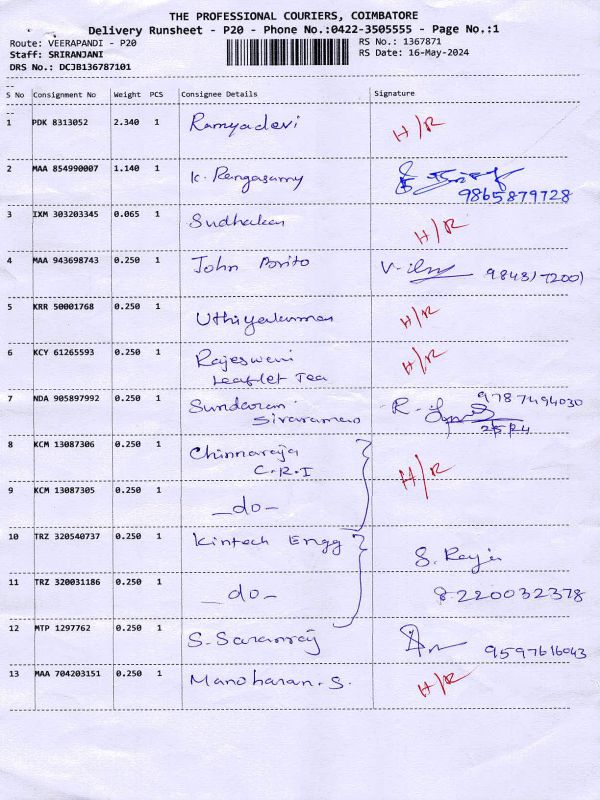 THE PROFESSIONAL COURIERS, COIMBATORE
Delivery Runsheet - P20 - Phone No.:0422-3505555 - Page No.:1
Route: VEERAPANDI - P20 RS No.: 1367871
Staff: SRIRANJANI RS Date: 16-May-2024
DRS No.: DCJB136787101
S No Consignment No Weight PCS Consignee Details Signature
1 PDK 8313052 2.340 1 Ramyadevi H/R
2 MAA 854990007 1.140 1 K. Rengasamy
9865879728
3 IXM 303203345 0.065 1 Sudhakar H/R
4 MAA 943698743 0.250 1 John Brito 9843172001
5 KRR 50001768 0.250 1 Uthiyakumar H/R
6 KCY 61265593 0.250 1 Rajeswari H/R
Leaflet Tea
7 NDA 905897992 0.250 1 Sundaram 9787494030
Sivaraman
8 KCM 13087306 0.250 1 Chinnaraja H/R
C.R.I
9 KCM 13087305 0.250 1 -do-
10 TRZ 320540737 0.250 1 Kintech Engg S. Raja
11 TRZ 320031186 0.250 1 -do- 8220032378
12 MTP 1297762 0.250 1 S. Saranraj 9597616043
13 MAA 704203151 0.250 1 Manoharan. S. H/R